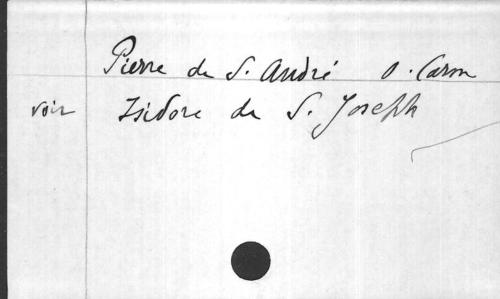 Pierre de S. André O. Carm
voir Isidore de S. Joseph